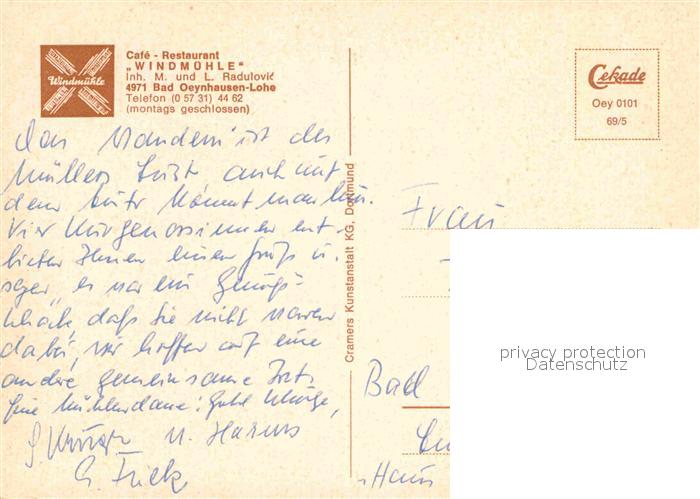 Windmühle
Café - Restaurant
„WINDMÜHLE"
Inh. M. und L. Radulović
4971 Bad Oeynhausen-Lohe
Telefon (0 57 31) 44 62
(montags geschlossen)
Cekade
Oey 0101
69/5
Das Wandern ist des
Müllers Lust auch mit
dem Auto kommt man hin.
Vier Kurgenossinnen ent-
bieten Ihnen einen Gruß u.
sagen „es war ein
schade, daß Sie nicht waren
dabei, wir hoffen auf eine
andere gemeinsame Zeit
Eine Mühlendame:
Cramers Kunstanstalt KG, Dortmund
Frau
Bad
Haus
privacy protection
Datenschutz